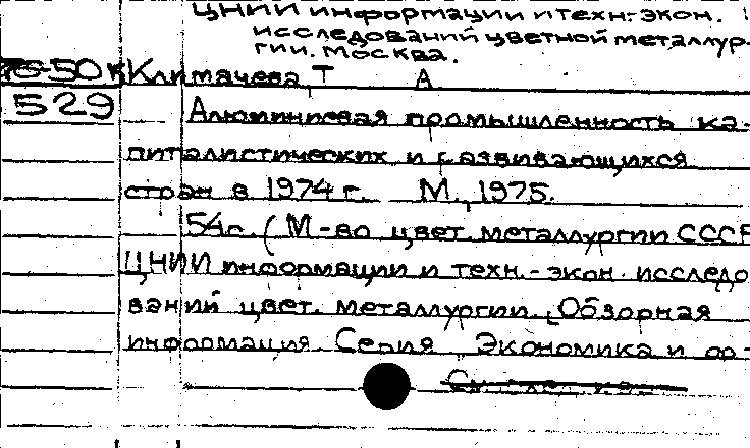 ЦНИИ информации и техн.-экон.
исследований цветной металлур-
гии. Москва.
76-50к Климачева, Т А
529 Алюминиевая промышленность ка-
питалистических и развивающихся
стран в 1974 г. М., 1975.
54с. (М-во цвет. металлургии СССР
ЦНИИ информации и техн.-экон. исследо
ваний цвет. металлургии. Обзорная
информация. Серия Экономика и ор-